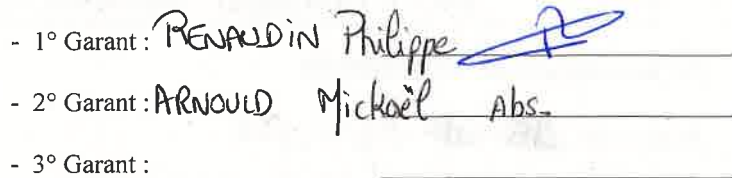 - 1° Garant : RENAUDIN Philippe
- 2° Garant : ARNOULD Mickaël Abs.
- 3° Garant :